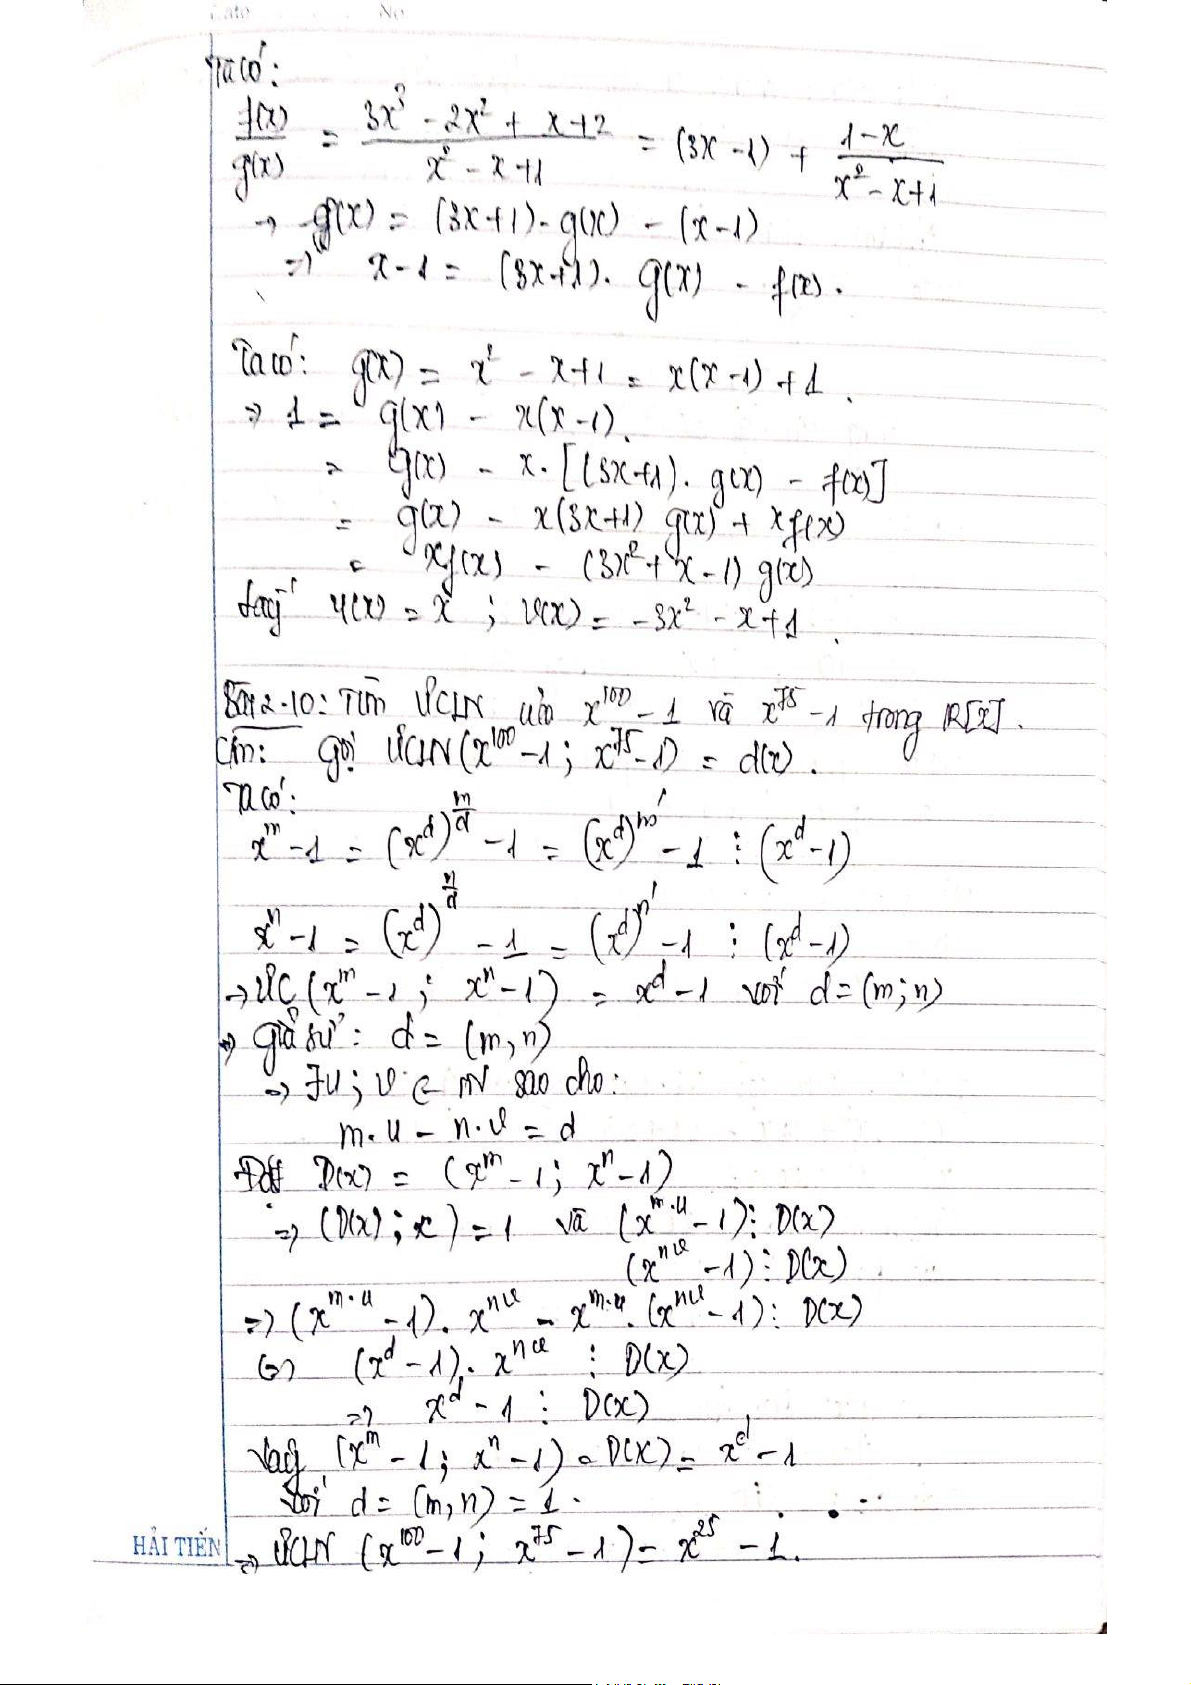 Date No
Ta có:
f(x)/g(x) = (3x³ - 2x² + x + 2)/(x² - x + 1) = (3x - 1) + (1 - x)/(x² - x + 1)
→ f(x) = (3x+1). g(x) - (x-1)
=> x - 1 = (3x+1). g(x) - f(x).
Ta có: g(x) = x² - x+1 = x(x-1) + 1.
=> 1 = g(x) - x(x-1).
= g(x) - x. [(3x+1). g(x) - f(x)]
= g(x) - x(3x+1) g(x) + xf(x)
= xf(x) - (3x² + x - 1) g(x)
Vậy u(x) = x ; v(x) = -3x² - x + 1.
Bài 2.10: Tìm ƯCLN của x¹⁰⁰ - 1 và x⁷⁵ - 1 trong R[x].
Cm: Gọi ƯCLN(x¹⁰⁰ - 1; x⁷⁵ - 1) = d(x).
Ta có:
x^m - 1 = (x^d)^(m/d) - 1 = (x^d)^m' - 1 ⋮ (x^d - 1)
x^n - 1 = (x^d)^(n/d) - 1 = (x^d)^n' - 1 ⋮ (x^d - 1)
→ ƯC (x^m - 1; x^n - 1) = x^d - 1 với d = (m; n)
=> Giả sử: d = (m, n)
=> ∃u; v ∈ N sao cho:
m.u - n.v = d
Đặt D(x) = (x^m - 1; x^n - 1)
=> (D(x); x) = 1 và (x^(m.u) - 1) ⋮ D(x)
(x^(nv) - 1) ⋮ D(x)
=> (x^(m.u) - 1). x^(nv) - x^(m.u). (x^(nv) - 1) ⋮ D(x)
<=> (x^d - 1). x^(nv) ⋮ D(x)
=> x^d - 1 ⋮ D(x)
Vậy (x^m - 1; x^n - 1) = D(x) = x^d - 1
với d = (m, n) = 1.
=> ƯCLN (x¹⁰⁰ - 1; x⁷⁵ - 1) = x²⁵ - 1.
HẢI TIẾN